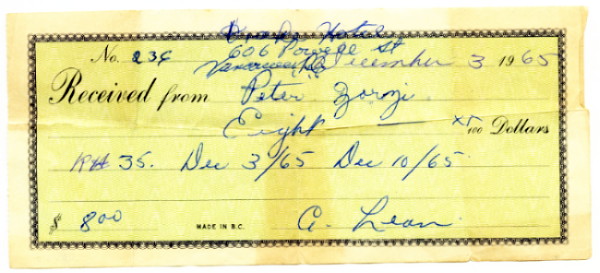 Hotel
606 Powell St
No. 236 Vancouver December 3 1965
Received from Peter
Eight xx/100 Dollars
RM 35. Dec 3/65 Dec 10/65
$ 8.00 MADE IN B.C. A. Lean